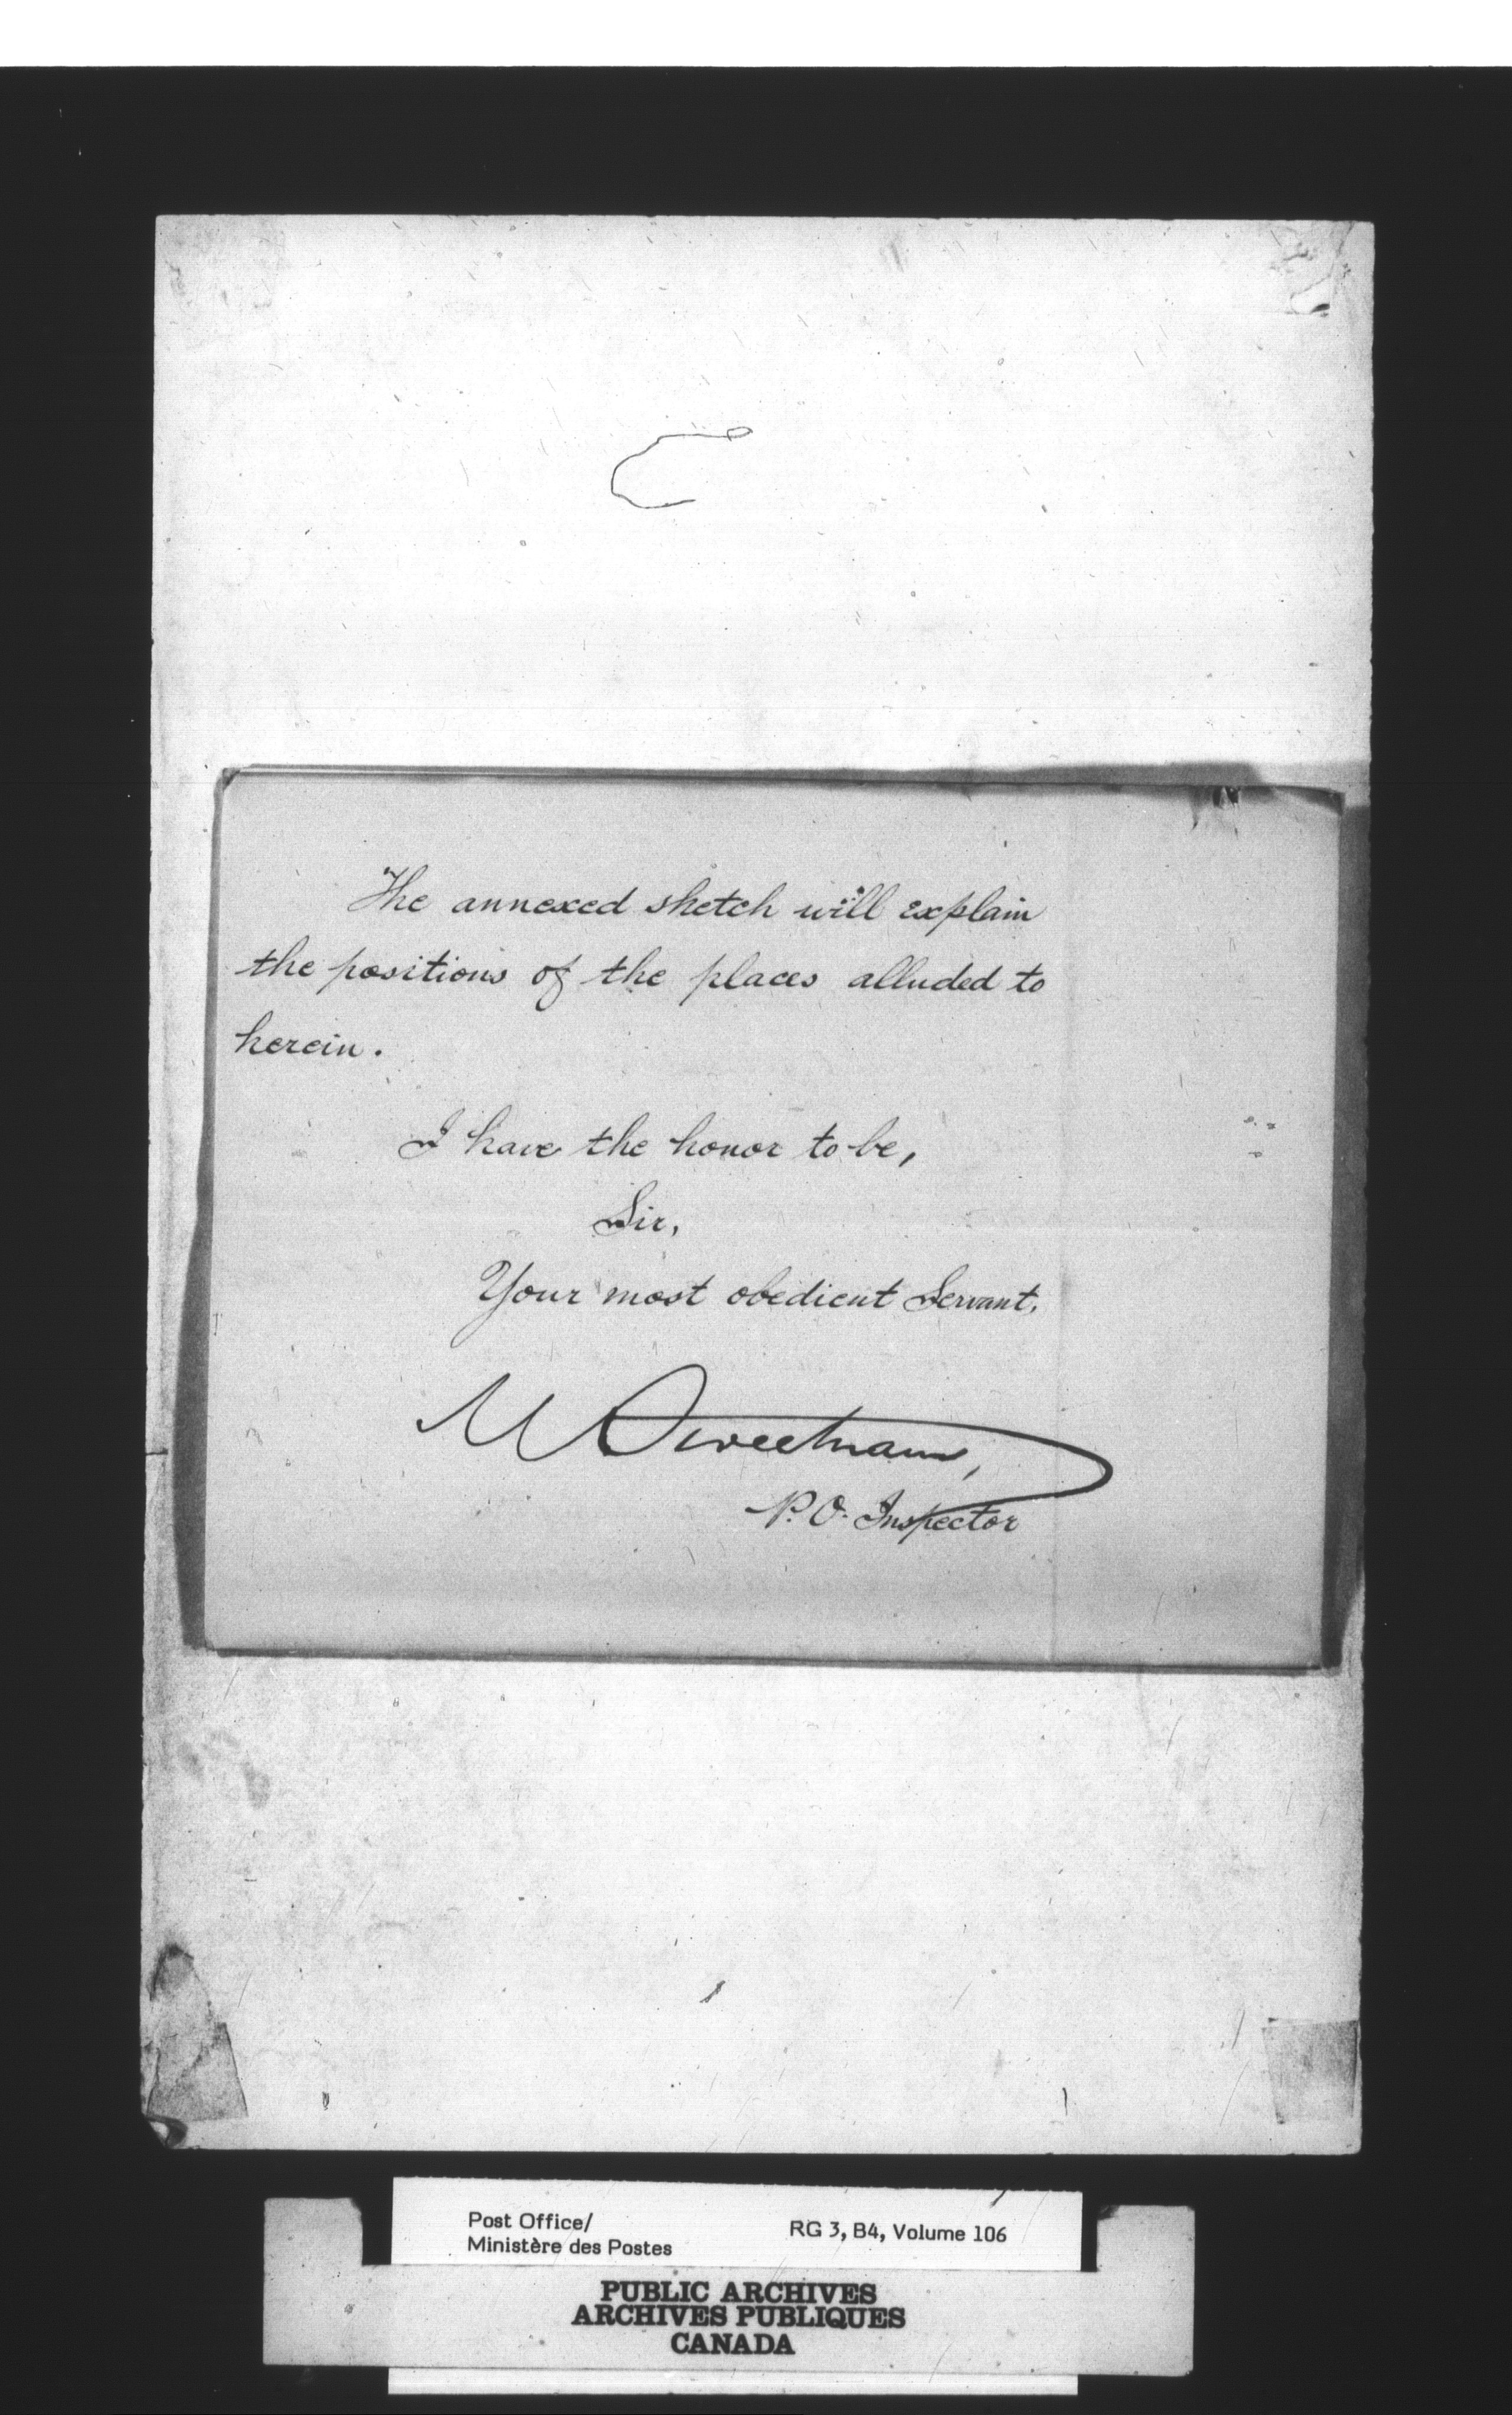 The annexed sketch will explain
the positions of the places alluded to
herein.
I have the honor to be,
Sir,
Your most obedient Servant,
M Sweetnam,
P.O. Inspector
Post Office/
Ministère des Postes
RG 3, B4, Volume 106
PUBLIC ARCHIVES
ARCHIVES PUBLIQUES
CANADA